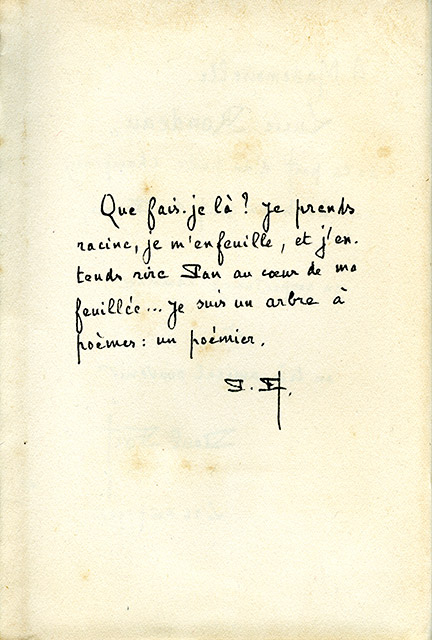 Que fais-je là ? je prends
racine, je m'enfeuille, et j'en-
tends rire Pan au cœur de ma
feuillée... je suis un arbre à
poèmes : un poémier.
P. F.